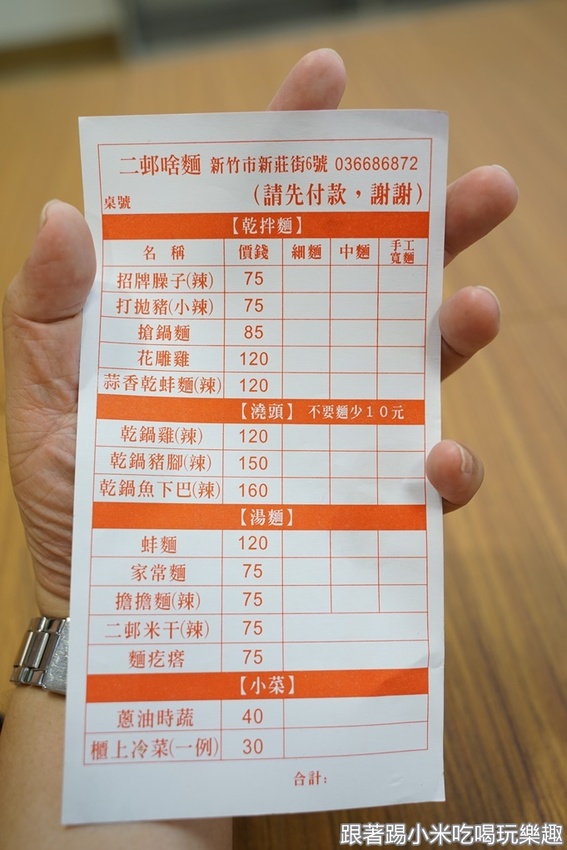 二邨啥麵 新竹市新莊街6號 036686872
桌號 (請先付款，謝謝)
【乾拌麵】
名稱 價錢 細麵 中麵 手工寬麵
招牌臊子(辣) 75
打拋豬(小辣) 75
搶鍋麵 85
花雕雞 120
蒜香乾蚌麵(辣) 120
【澆頭】 不要麵少10元
乾鍋雞(辣) 120
乾鍋豬腳(辣) 150
乾鍋魚下巴(辣) 160
【湯麵】
蚌麵 120
家常麵 75
擔擔麵(辣) 75
二邨米干(辣) 75
麵疙瘩 75
【小菜】
蔥油時蔬 40
櫃上冷菜(一例) 30
合計:
跟著踢小米吃喝玩樂趣